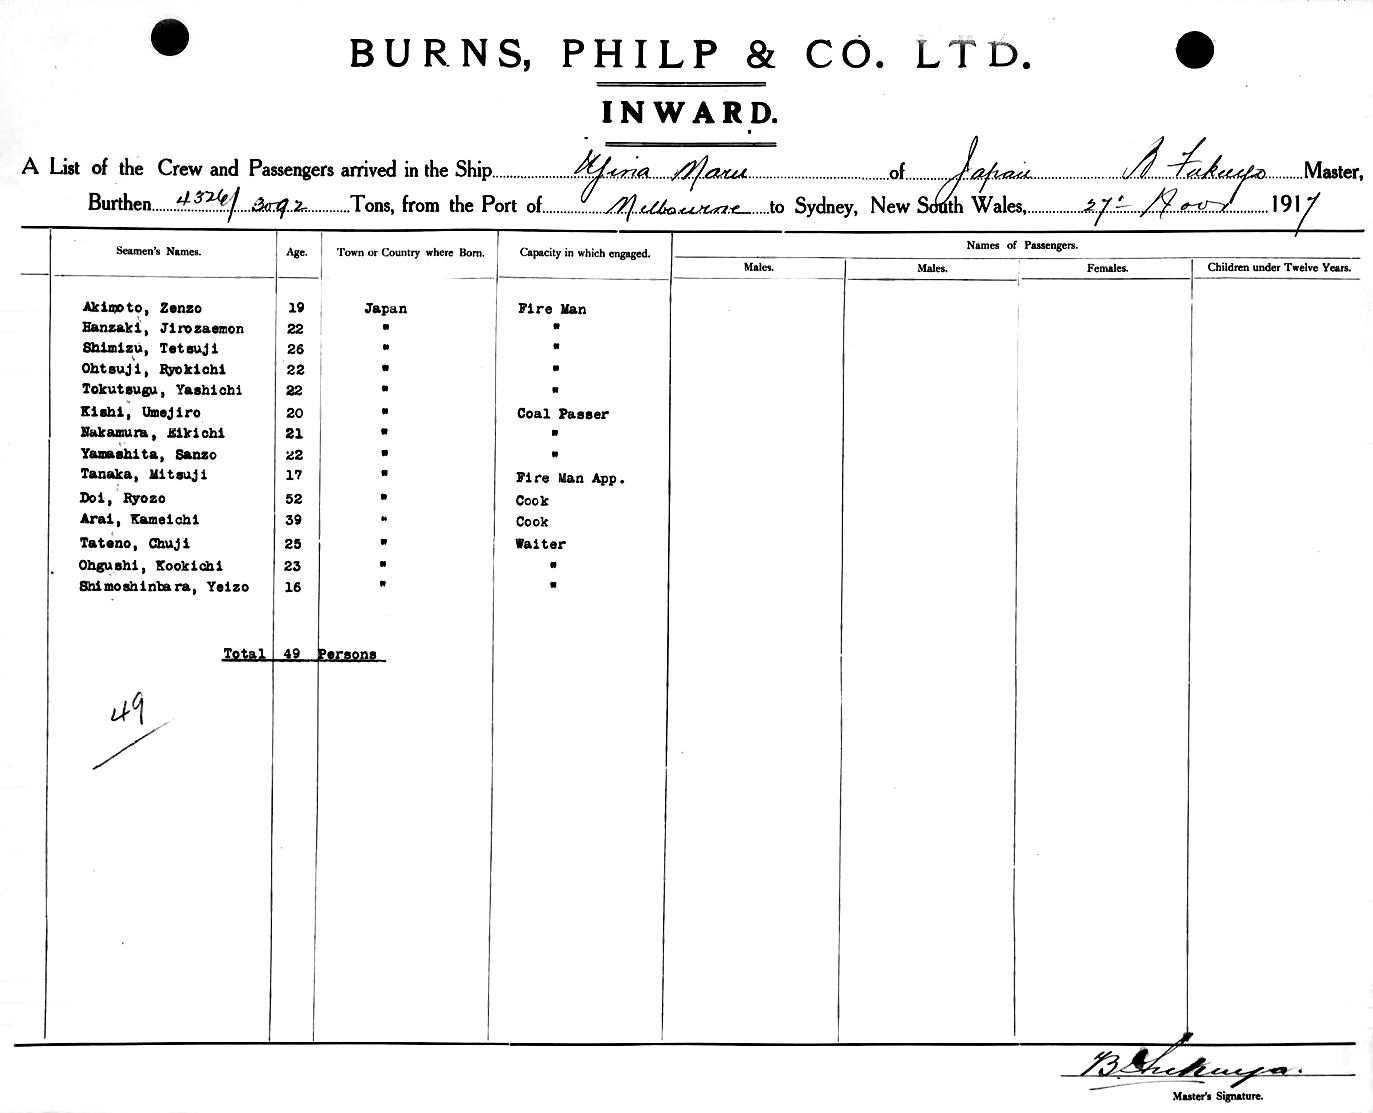 BURNS, PHILP & CO. LTD.
INWARD.
A List of the Crew and Passengers arrived in the Ship Maru of Japan B Fukuya Master,
Burthen 4326/3092 Tons, from the Port of Melbourne to Sydney, New South Wales, 27th Novr 1917
Names of Passengers.
Seamen's Names. Age. Town or Country where Born. Capacity in which engaged. Males. Males. Females. Children under Twelve Years.
Akimoto, Zenzo 19 Japan Fire Man
Hanzaki, Jirozaemon 22 " "
Shimizu, Tetsuji 26 " "
Ohtsuji, Ryokichi 22 " "
Tokutsugu, Yashichi 22 " "
Kishi, Umejiro 20 " Coal Passer
Nakamura, Eikichi 21 " "
Yamashita, Sanzo 22 " "
Tanaka, Mitsuji 17 " Fire Man App.
Doi, Ryozo 52 " Cook
Arai, Kameichi 39 " Cook
Tateno, Chuji 25 " Waiter
Ohgushi, Kookichi 23 " "
Shimoshinbara, Yeizo 16 " "
Total 49 Persons
49
B Fukuya.
Master's Signature.